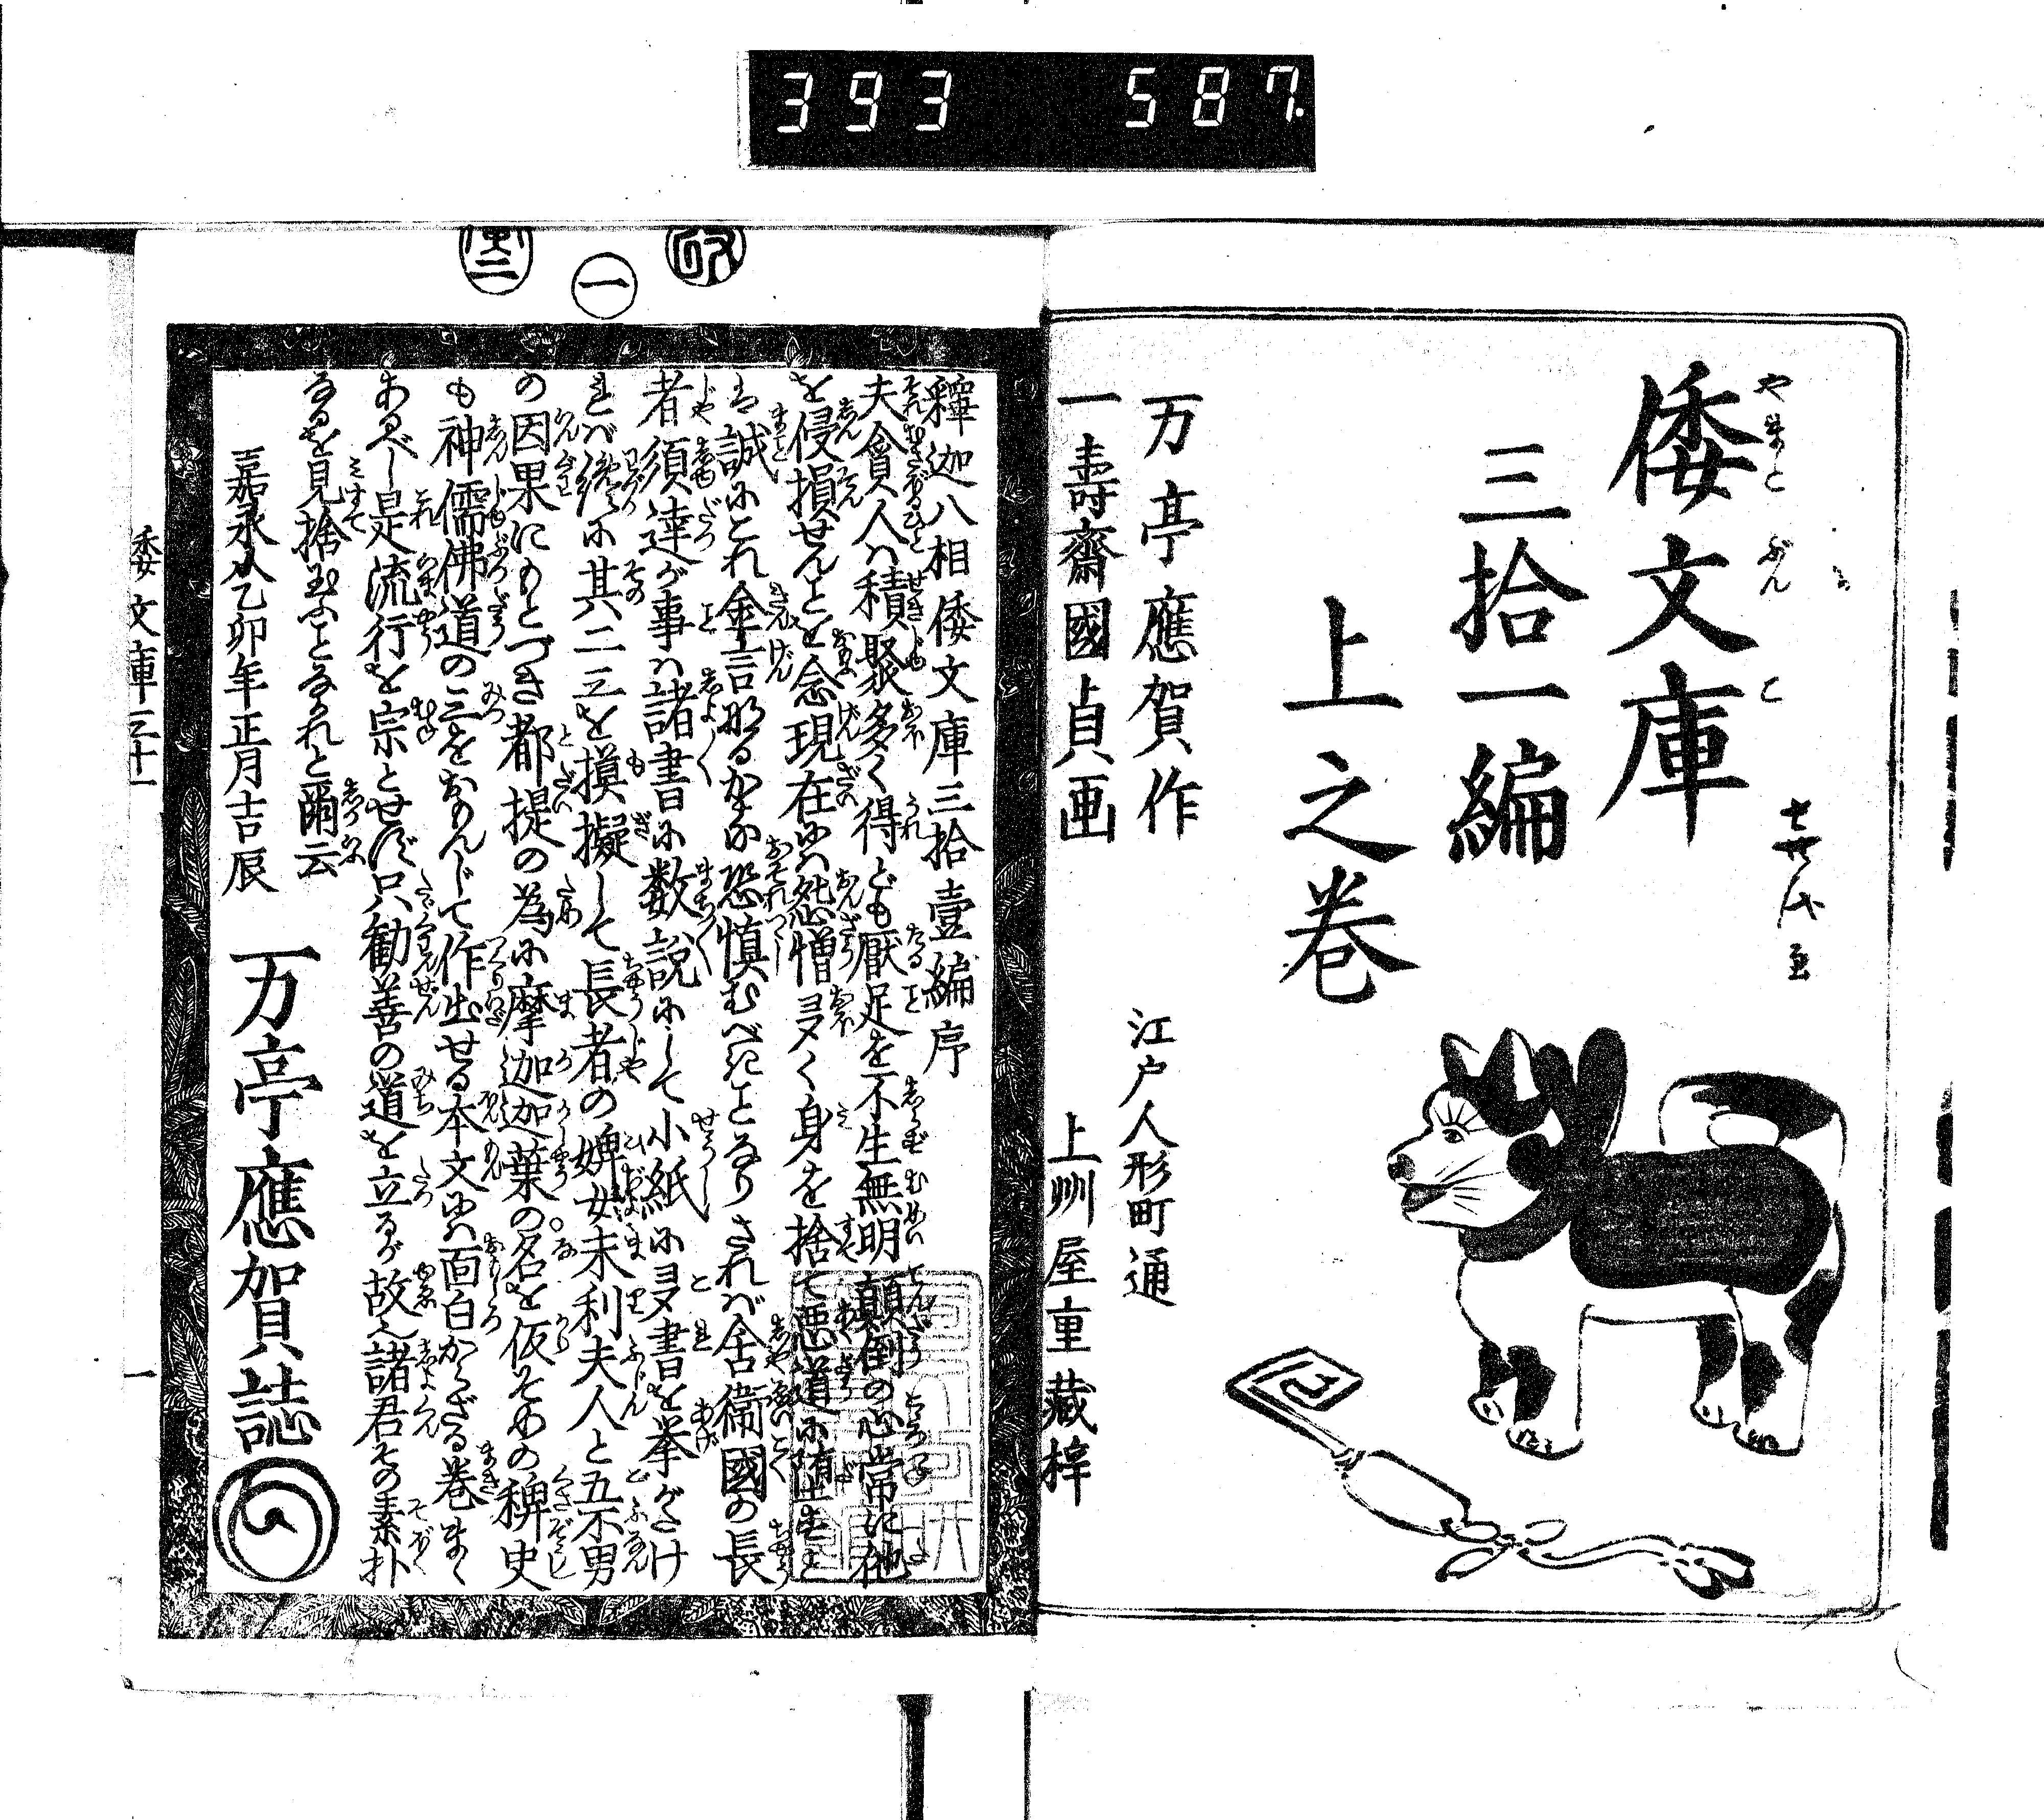 393 587
倭文庫
やまと ぶん こ
三拾一編
上之巻
万亭應賀作
一壽齋國貞画
江戸人形町通
上州屋重藏梓
改
一
釋迦八相倭文庫三拾壹編序
夫貪人は積聚多く得ども厭足を不生無明顛倒の心常に他
を侵損せんとを念現在には怨憎多く身を捨て悪道に堕すと
は誠にこれ金言なるかな恐慎むべきことなりされば舎衛國の長
者須達が事は諸書に数説にして小紙に多書を挙がたけ
れば纔に其二三を摸擬して長者の婢女末利夫人と五不男
の因果にもとづき都提の為に摩迦迦葉の名を仮そめの稗史
も神儒佛道の三をおもんじて作出せる本文には面白からざる巻まく
あるべし是流行を宗とせず只勧善の道を立るが故也諸君その素朴
なるを見捨玉ふことなかれと爾云
嘉永八乙卯年正月吉辰
万亭應賀誌
倭文庫三十一
一